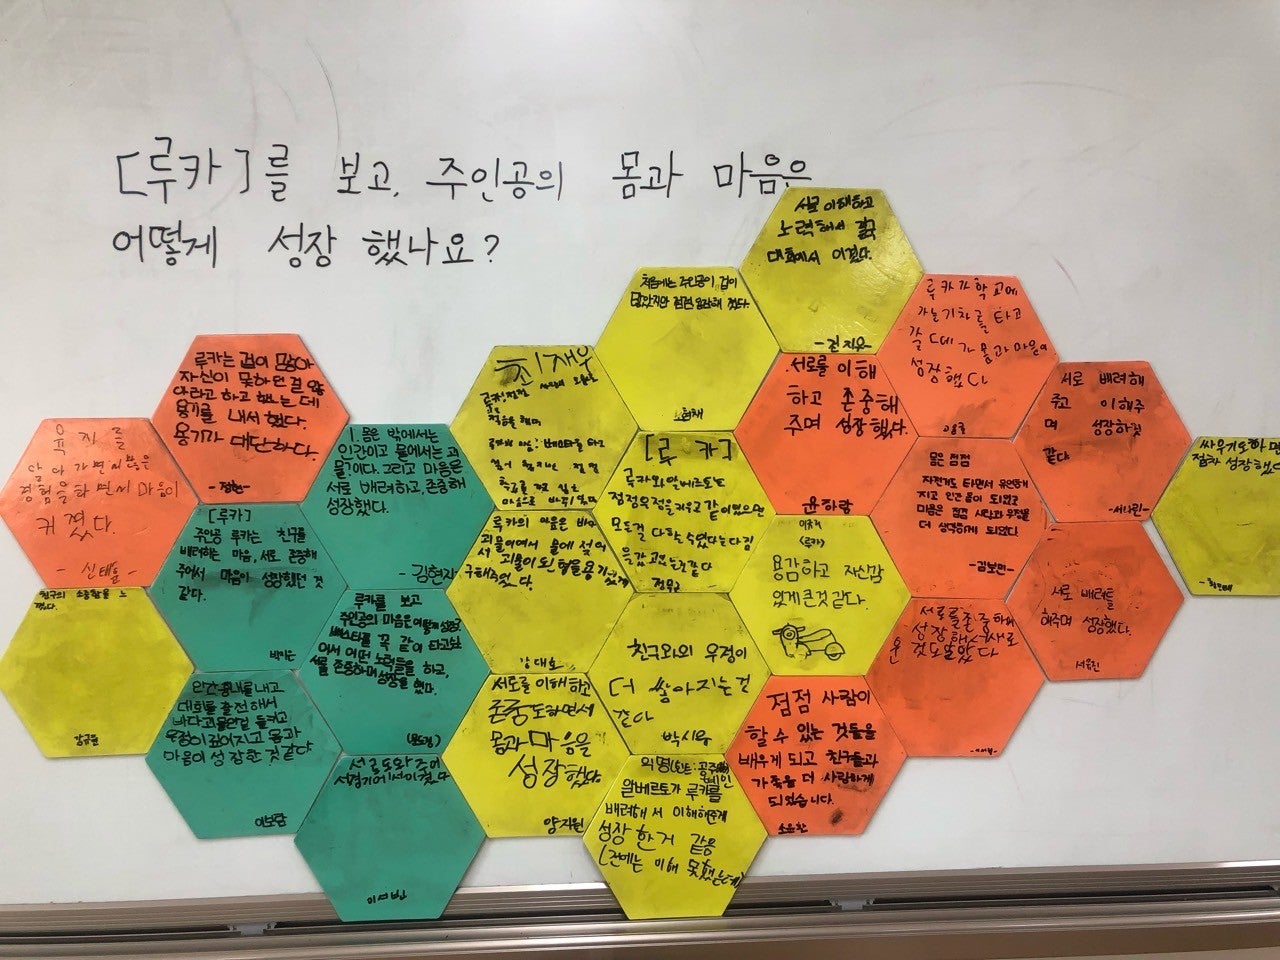 [루카]를 보고, 주인공의 몸과 마음은
어떻게 성장 했나요?
서로 이해하고
노력해서
대회에서 이겼다.
처음에는 주인공이 겁이
많았지만 점점 성장해 갔다.
루카가 학교에
가는 기차를 타고
갈 때 몸과 마음이
성장했다
루카는 겁이 많아
자신이 못하던 걸
용기를 내서 했다.
용기가 대단하다.
서로를 이해
하고 존중해
주며 성장했다.
윤하랑
서로 배려해
주고 이해주
며 성장하것
같다.
-서나린-
싸우기도 하면
점차 성장했
육지를
경험을 하면서 마음이
커졌다.
- 신태율 -
1. 몸은 밖에서는
인간이고 물에서는 괴
물이다. 그리고 마음은
서로 배려하고, 존중해
성장했다.
- 김현지
최재우
[루카]
루카와 알베르토는
점점 우정을 키우고 같이 있으면
모든걸 다 할 수 있었다는 다짐
을 갖고 있는것 같다
몸은 점점
자전거도 타면서 유연해
지고 인간 몸이 되었고
마음은 점점 사랑과 우정을
더 생각하게 되었다.
-김보민-
[루카]
주인공 루카는 친구를
배려하는 마음, 서로 존중해
주어서 마음이 성장했던 것
같다.
루카의 마음은
괴물이여서 물에 젖어
서 괴물이 된
구해주었다.
강대호
<루카>
용감하고 자신감
있게 큰것 같다.
서로 배려를
해주며 성장했다.
서유진
친구의 소중함을 느
꼈다.
루카를 보고
주인공의 마음은 어떻게
베스파를 꼭 같이 타고싶
어서 어떤 노력들을 하고,
서로 존중하며 성장을 했다.
서로를 존중하며
성장해서 새로
운 것도 알았다
친구와의 우정이
더 쌓아지는 걸
같아
박시우
인간 흉내를 내고
대회를 출전해서
나다 괴물인걸 들키고
우정이 깊어지고 몸과
마음이 성장한 것 같다
이보람
서로를 이해하고
존중도 하면서
몸과 마음은
성장했다.
양지원
점점 사람이
할 수 있는 것들을
배우게 되고 친구들과
가족을 더 사랑하게
되었습니다.
소윤찬
서로 도와주어
이서반
익명(힌트: 공주
알베르토가 루카를
배려해서 이해해주게
성장한거 같음
(전에는 이해 못했는데)